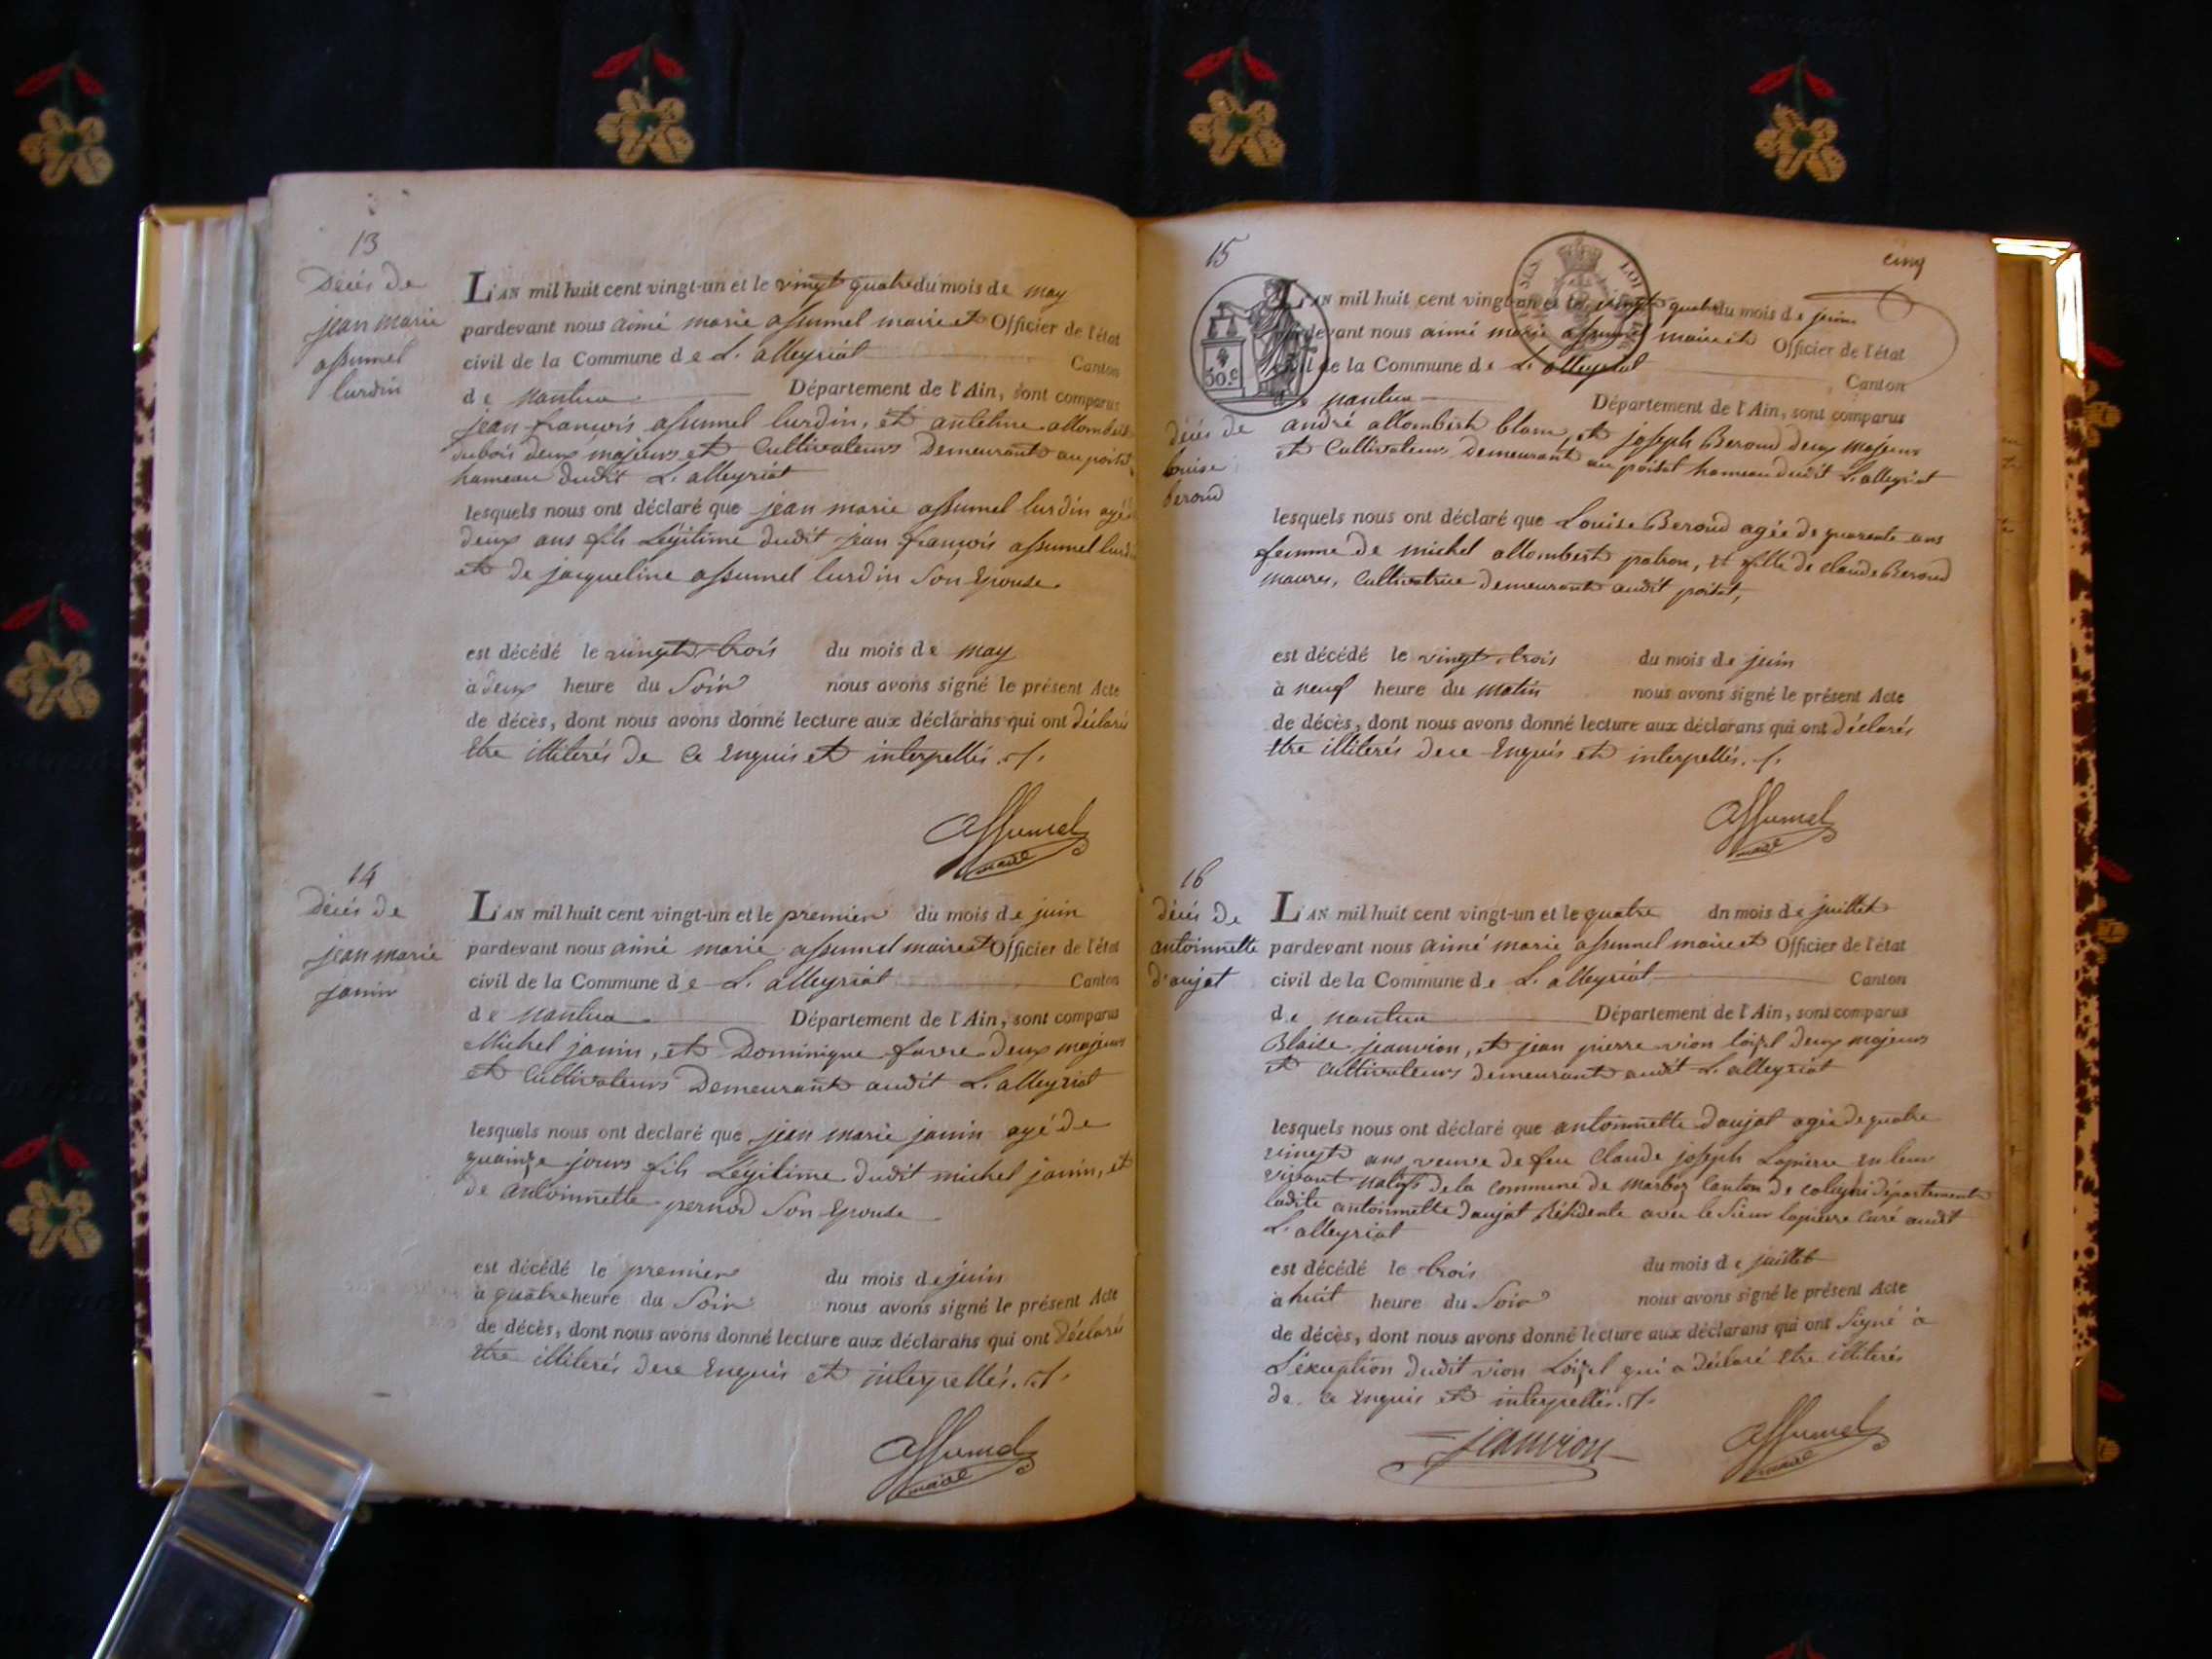 13
Décès de
jean marie
assumel
lurdin
L'AN mil huit cent vingt-un et le vingt quatre du mois de may
pardevant nous aimé marie assumel maire et Officier de l'état
civil de la Commune de L'alleyriat Canton
de nantua Département de l'Ain, sont comparus
jean françois assumel lurdin, et antelme allombert
dubois deux majeurs et Cultivateurs Demeurants au poisat
hameau dudit L'alleyriat
lesquels nous ont déclaré que jean marie assumel lurdin agé de
deux ans fils Légitime dudit jean françois assumel lurdin
et de jacqueline assumel lurdin Son Epouse
est décédé le vingt trois du mois de may
à deux heure du Soir nous avons signé le présent Acte
de décès, dont nous avons donné lecture aux déclarans qui ont déclarés
Etre illiterés de ce Enquis et interpellés ./.
Assumel
maire
14
Décès de
jean marie
janin
L'AN mil huit cent vingt-un et le premier du mois de juin
pardevant nous aimé marie assumel maire et Officier de l'état
civil de la Commune de L'alleyriat Canton
de nantua Département de l'Ain, sont comparus
Michel janin, et Dominique favre deux majeurs
et Cultivateurs Demeurants audit L'alleyriat
lesquels nous ont declaré que jean marie janin agé de
quainze jours fils Légitime dudit michel janin, et
de antoinnette pernod Son Epouse
est décédé le premier du mois de juin
à quatre heure du Soir nous avons signé le présent Acte
de décès, dont nous avons donné lecture aux déclarans qui ont déclarés
Etre illiterés de ce Enquis et interpellés ./.
Assumel
maire
15
cinq
50.c
L'AN mil huit cent vingt-un et le vingt quatre du mois de juin
pardevant nous aimé marie assumel maire et Officier de l'état
civil de la Commune de L'alleyriat Canton
de nantua Département de l'Ain, sont comparus
décès de
louise
beroud
andré allombert blanc, et joseph Beroud deux majeurs
et Cultivateurs Demeurant au poisat hameau dudit L'alleyriat
lesquels nous ont déclaré que Louise Beroud agée de quarente ans
femme de michel allombert patron, et fille de claude Beroud
maures, Cultivatrice demeurant audit poisat,
est décédé le vingt trois du mois de juin
à neuf heure du matin nous avons signé le présent Acte
de décès, dont nous avons donné lecture aux déclarans qui ont déclarés
Etre illiterés de ce Enquis et interpellés ./.
Assumel
maire
16
décès de
antoinnette
d'aujat
L'AN mil huit cent vingt-un et le quatre dn mois de juillet
pardevant nous aimé marie assumel maire et Officier de l'état
civil de la Commune de L'alleyriat Canton
de nantua Département de l'Ain, sont comparus
Blaise jeanvion, et jean pierre vion loisel deux majeurs
et Cultivateurs demeurants audit L'alleyriat
lesquels nous ont déclaré que antoinnette daujat agée de quatre
vingt ans veuve de feu claude joseph Lapierre en leur
vivant natifs de la commune de marboz canton de coligni département
ladite antoinnette daujat Résidente avec le Sieur lapierre curé audit
L'alleyriat
est décédé le trois du mois de juillet
à huit heure du Soir nous avons signé le présent Acte
de décès, dont nous avons donné lecture aux déclarans qui ont Signé à
L'exception dudit vion Loisel qui a déclaré Etre illiterés
de ce Enquis et interpellés ./.
jeanvion
Assumel
maire